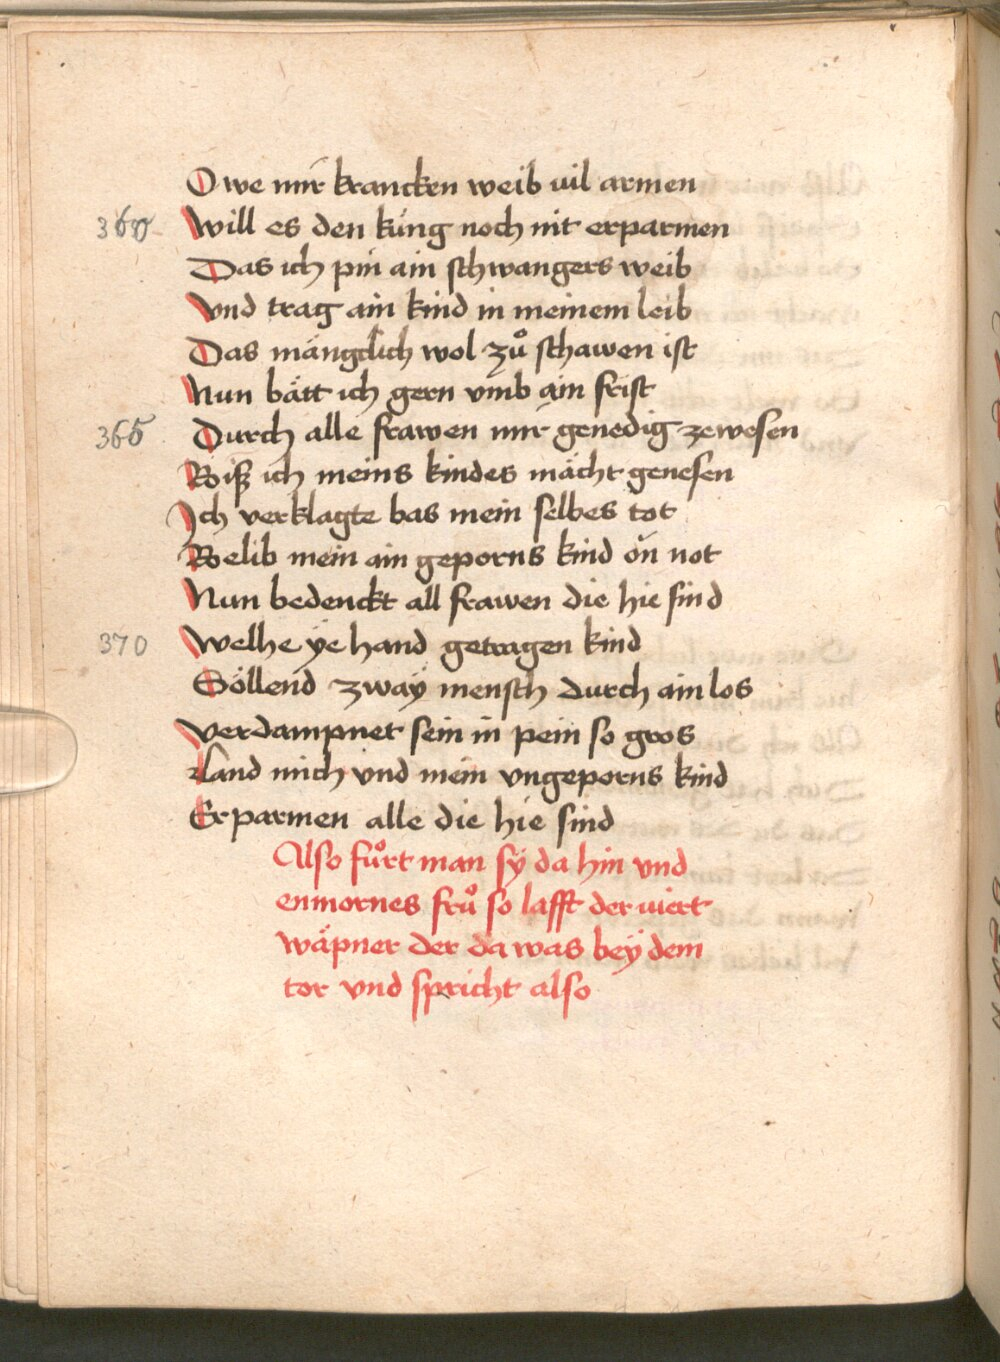 Owe mir krancken weib vil armen
360 Will es den kúng noch nit erparmen
Das ich pin ain schwangers weib
Vnd trag ain kind in meinem leib
Das mängclich wol zů schawen ist
Nun bätt ich gern vmb ain frist
365 Durch alle frawen mir genedig zewesen
Biß ich meins kindes mächt genesen
Ich verklagte bas mein selbes tot
Belib mein ain geporns kind on not
Nun bedenckt all frawen die hie sind
370 Welhe ÿe hand getragen kind
Söllend zwaÿ mensch durch ain los
Verdampnet sein in pein so gros
Land mich vnd mein vngeporns kind
Erparmen alle die hie sind
Also fůrt man sÿ da hin vnd
enmornes frů so lafft der viert
wäpner der da was beÿ dem
tor vnd spricht also